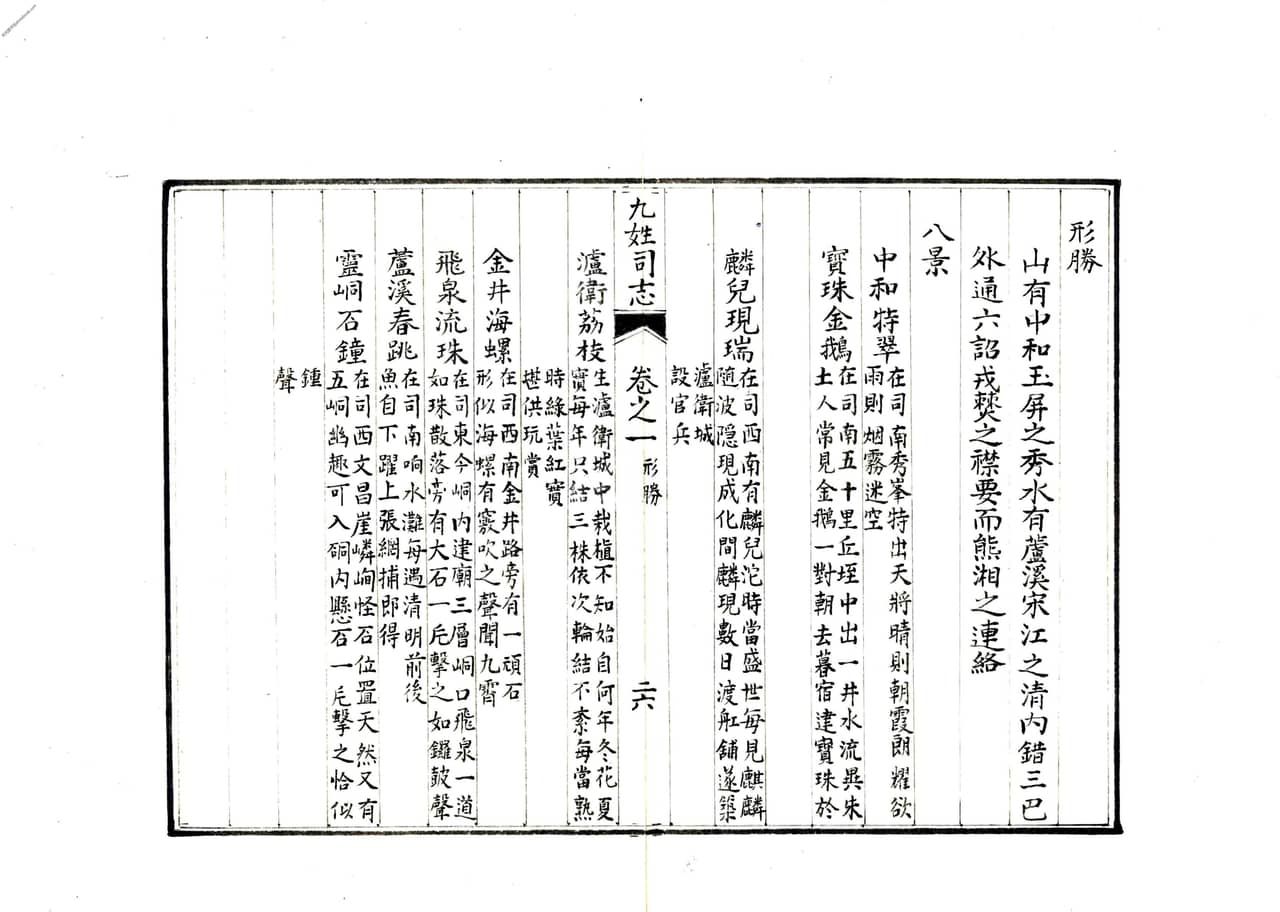 形勝
山有中和玉屏之秀水有蘆溪宋江之清内錯三巴
外通六詔戎僰之襟要而熊湘之連絡
八景
中和特翠
在司南秀峯特出天將晴則朝霞朗耀欲
雨則烟霧迷空
寶珠金鵝
在司南五十里丘垤中出一井水流異朱
土人常見金鵝一對朝去暮宿建寶珠於
麟兒現瑞
在司西南有麟兒沱時當盛世每見麒麟
随波隱現成化間麟現數日渡舡舖遂築
瀘衛城
設官兵
九姓司志
卷之一
形勝
二六
瀘衛荔枝
生瀘衛城中栽植不知始自何年冬花夏
實每年只結三株依次輪結不紊每當熟
時綠葉紅實
堪供玩賞
金井海螺
在司西南金井路旁有一頑石
形似海螺有竅吹之聲聞九霄
飛泉流珠
在司東今峒内建廟三層峒口飛泉一道
如珠散落旁有大石一片擊之如鑼鼓聲
蘆溪春跳
在司南响水灘每遇清明前後
魚自下躍上張網捕即得
靈峒石鐘
在司西文昌崖嶙峋怪石位置天然又有
五峒幽趣可入硐内懸石一片擊之恰似
鍾
聲